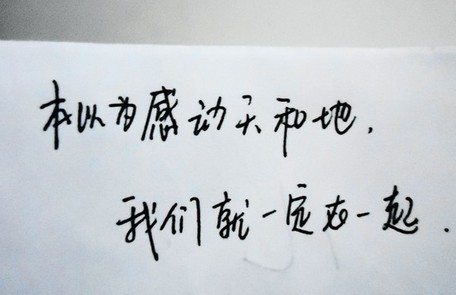 本以为感动天和地，
我们就一定在一起．